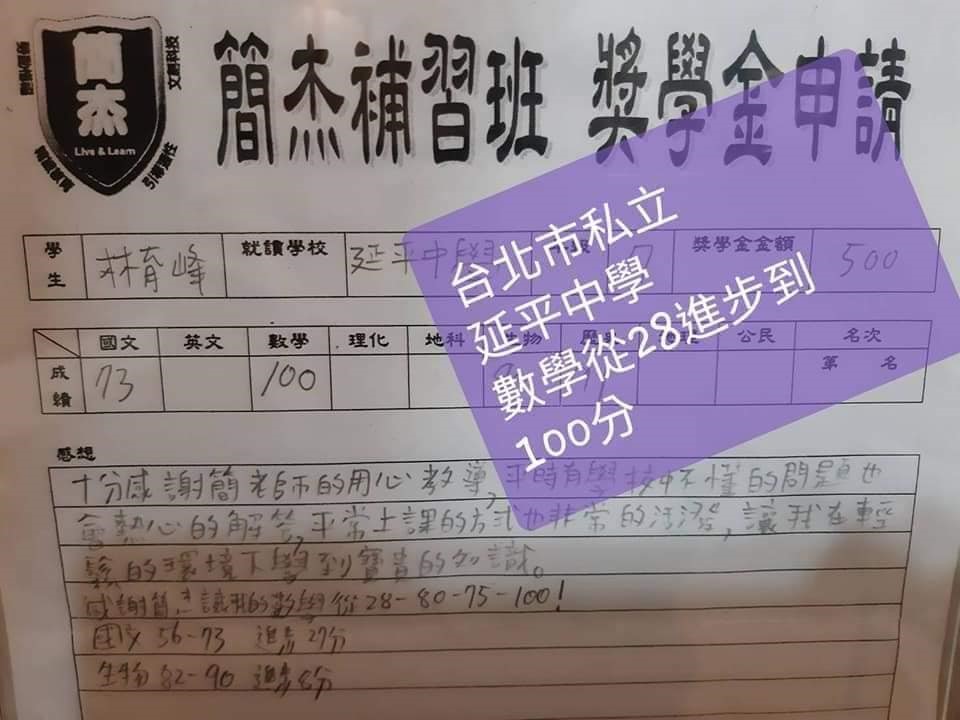 簡杰
Live & Learn
簡杰補習班 獎學金申請
學生 林育峰 就讀學校 延平中學 7 獎學金金額 500
國文 英文 數學 理化 地科 生物 公民 名次
成績 73 100 第 名
台北市私立
延平中學
數學從28進步到
100分
感想
十分感謝簡老師的用心教導,平時有學校中不懂的問題也
會熱心的解答,平常上課的方式也非常的活潑,讓我在輕
鬆的環境下學到寶貴的知識。
感謝簡杰讓我的數學從28-80-75-100!
國文 56-73 進步27分
生物 82-90 進步8分